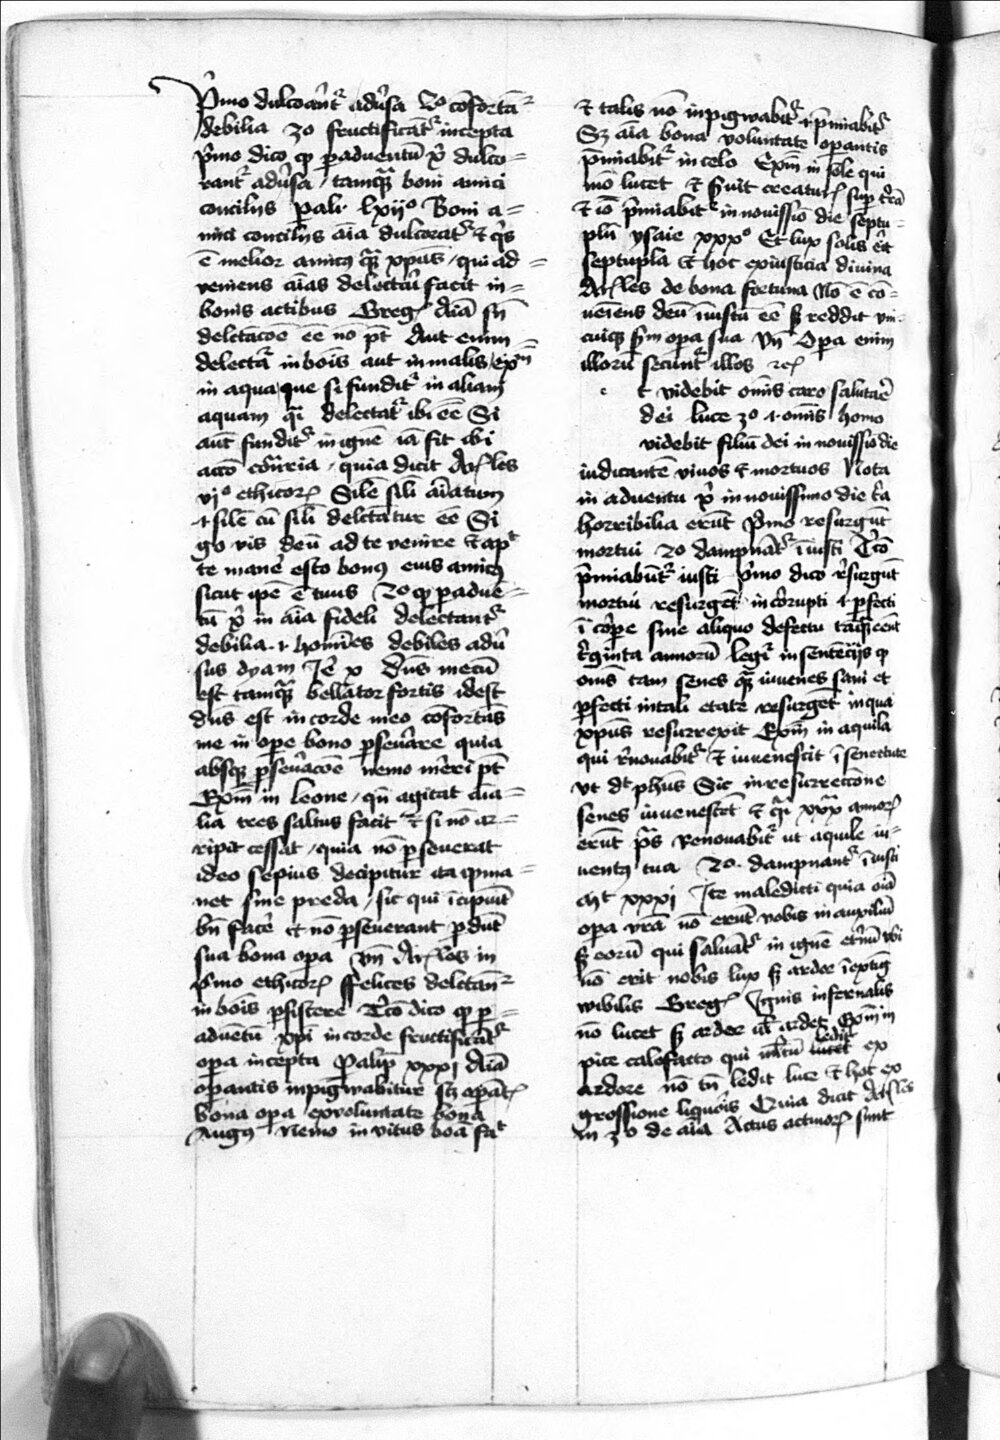 P̃mo dulcorãtʳ adůsa 2o cõfortãtʳ
debilia 3o fructificãtʳ incepta
p̃mo dico ꝙ ꝑ aduentũ x̃ dulco=
rantʳ adůsa / tamqᷓ boni amici
consiliis pali· lxiio Boni a=
mici consiliis aĩa dulcoratʳ ⁊ qͥs
ẽ melior amicꝰ qᷓ xpũs / qui ad=
veniens aĩas delectaři facit in=
bonis actibus Gregꝛ aĩa sñ
delctacõe eẽ nõ põt Aut enim
delectatʳ in boĩs aut in malis / exm̃
in aqua / que si funditʳ in aliam
aquam qͣi delectatʳ ibi eẽ Si
aũt funditʳ in ignẽ iã fit ibi
accõ cõtͬria / quia dicit Arꝛles
vjo ethicorꝝ Silẽ sili aĩatum
·i· silẽ cũ sili delctatur eẽ Si
gͦ vis deũ ad te venire ⁊ apͭ
te manẽ esto bonꝰ eius amicꝰ
sicut ip̃e ẽ tuus 2o ꝙ ꝑ aduẽ=
tũ x̃ in aĩa fideli delectantʳ
debilia ·i· homĩes debiles adů
sus dyam Jẽ x̃ Dñs mecũ
est tamqᷓ bellator fortis idest
dñs est in corde meo cõfortãs
me in oꝑe bono ꝑseůare quia
absqꝫ ꝑseůacõe nemo mẽri põt
Exm̃ in leone / qñ agitat aĩa=
lia tres saltus facit ⁊ si nõ ar=
ripit cessat / quia nõ ꝑseuerat
ideo sepius decipitur ita ꝙ ma=
net sine preda / sic qui ĩcipiũt
bñ facẽ et nõ ꝑseuerant ꝑdũt
sua bona oꝑa vñ Arꝛles in
p̃mo ethicorꝝ ffelices delectãtʳ
in boĩs ꝑsistere Tͨcõ dico ꝙ ꝑ=
aduẽtũ xpi in corde fructificãtʳ
oꝑa incepta Palip̃ xxxj Aĩa
oꝑantis inpigwabitur scꝫ oꝑãtꝭ
bona oꝑa ex voluntate bona
Augꝰ Nemo invitus boã facͭ
⁊ talis nõ inpigwabitʳ ·i· p̃miabitʳ
Sꝫ aĩa bona voluntate oꝑantis
p̃miabitʳ in celo Exm̃ in sole qui
nõ lucet ⁊ ẞuit creaturꝭ suꝑ tẽrã
⁊ iõ p̃miabitʳ in nouissio die septu=
plũ ysaie xxxo Et lux solis eĩt
septupla ⁊ hoc ex iusticia diuina
Arꝛles de bona fortuna Nõ ẽ cõ=
ueĩens deũ ĩiustũ eẽ ẞ reddit vni=
cuiqꝫ ẞm oꝑa sua Vñ Oꝑa enim
illorũ secuntʳ illos ⁊cꝭ
t videbit om̃is caro salutãe
dei luce 3o ·i· om̃is homo
videbit filiũ dei in nouissio die
iudicantẽ viuos ⁊ mortuos Nota
in aduentu x̃ in nouissimo die tͥa
horribilia erũt P̃mo resurgũt
mortui 2o dampnãtʳ ĩiusti Tͨcõ
p̃miabũtʳ iusti p̃mo dico r̃surgũt
mortui resurgẽt incõrupti ·i· ꝑfecti
ĩ cõꝑe sine aliquo defectu tãqᷓ cent
tͥginta annorũ legiʳ in sentẽciis ꝙ
om̃s tam senes qᷓ iuuenes sani et
ꝑfecti in tali etate resurgẽt in qua
xpũs resurrexit Exm̃ in aquila
qui r̃nouabitʳ ⁊ iuuenescit ĩ senectute
vt dͭ phũs Sic in resurreccõne
senes iuuenescẽt ⁊ qͣi xxxᷓ annorꝝ
erũt p̃s Renouabitʳ ut aquile iu=
uentꝰ tua 2o· dampnantʳ ĩiusti
Mt xxxj Jte maledicti quia oĩa
oꝑa vrã nõ erũt vobis in auxiliũ
ẞ eorũ qui saluãtʳ in ignẽ etͬnũ vbi
nõ erit nobis lux ẞ ardor ĩextĩg
wibilis Gregꝛ Jgnis infernalis
nõ lucet ẞ ardor ul̃ ardet Exm̃ in
pice calefacto qui m̃ltũ ledit ex
ardore nõ tñ ledit luce ⁊ hoc ex
grossione liquoris Quia dicit Arꝛles
in 3o de aĩa Actus actiuorꝝ sunt